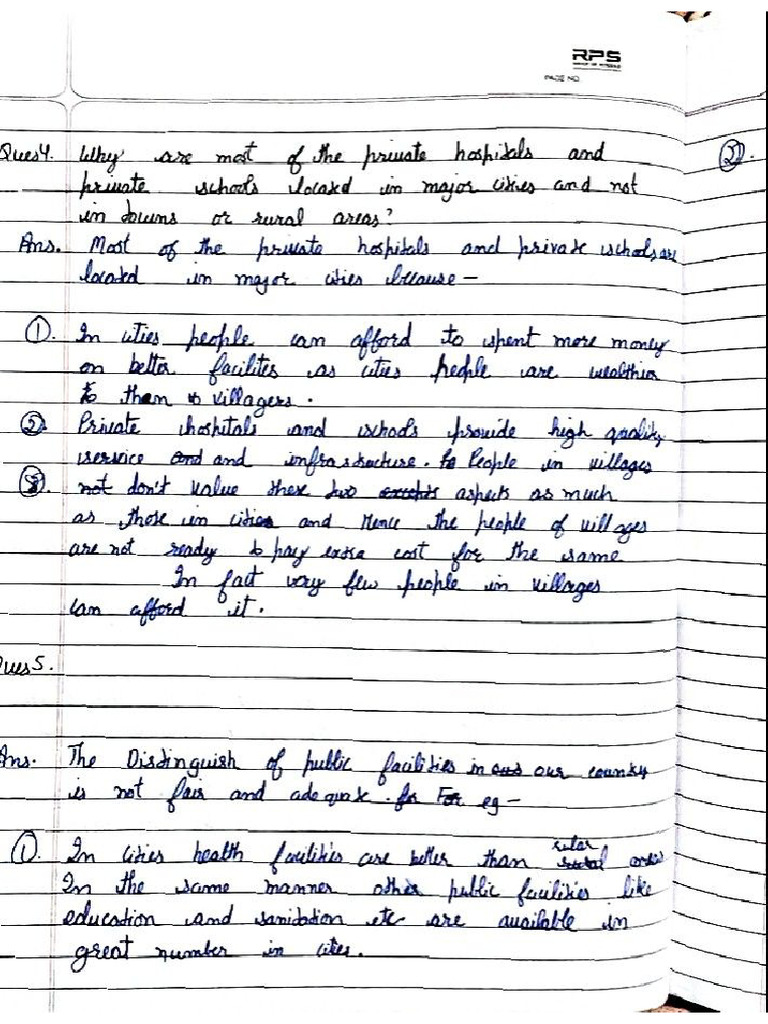 RPS
PAGE NO.
Ques4. Why are most of the private hospitals and
private schools located in major cities and not
in towns or rural areas?
Ans. Most of the private hospitals and private schools are
located in major cities because –
①. In cities people can afford to spent more money
on better facilites as cities people are wealthier
to than to villagers.
②. Private hospitals and schools provide high quality
service and and infrastructure. to People in villages
③. not don't value these two aspects as much
as those in cities and Hence the people of villages
are not ready to pay extra cost for the same
In fact very few people in villages
can afford it.
Ques5.
Ans. The Distinguish of public facilities in our country
is not fair and adequate. for For eg –
①. In cities health facilities are better than rular
In the same manner other public facilities like
education and sanitation etc are available in
great number in cities.
②.